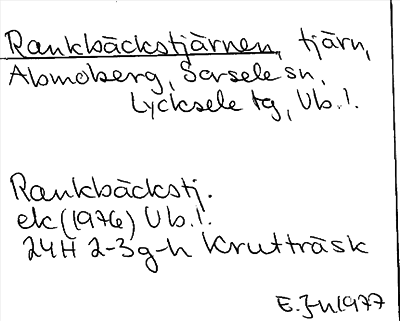 Rankbäckstjärnen, tjärn,
Abmoberg, Sorsele sn,
Lycksele tg, Vb. l.
Rankbäckstj.
ek (1976) Vb. l.
24H 2-3g-h Krutträsk
E. J-n 1977